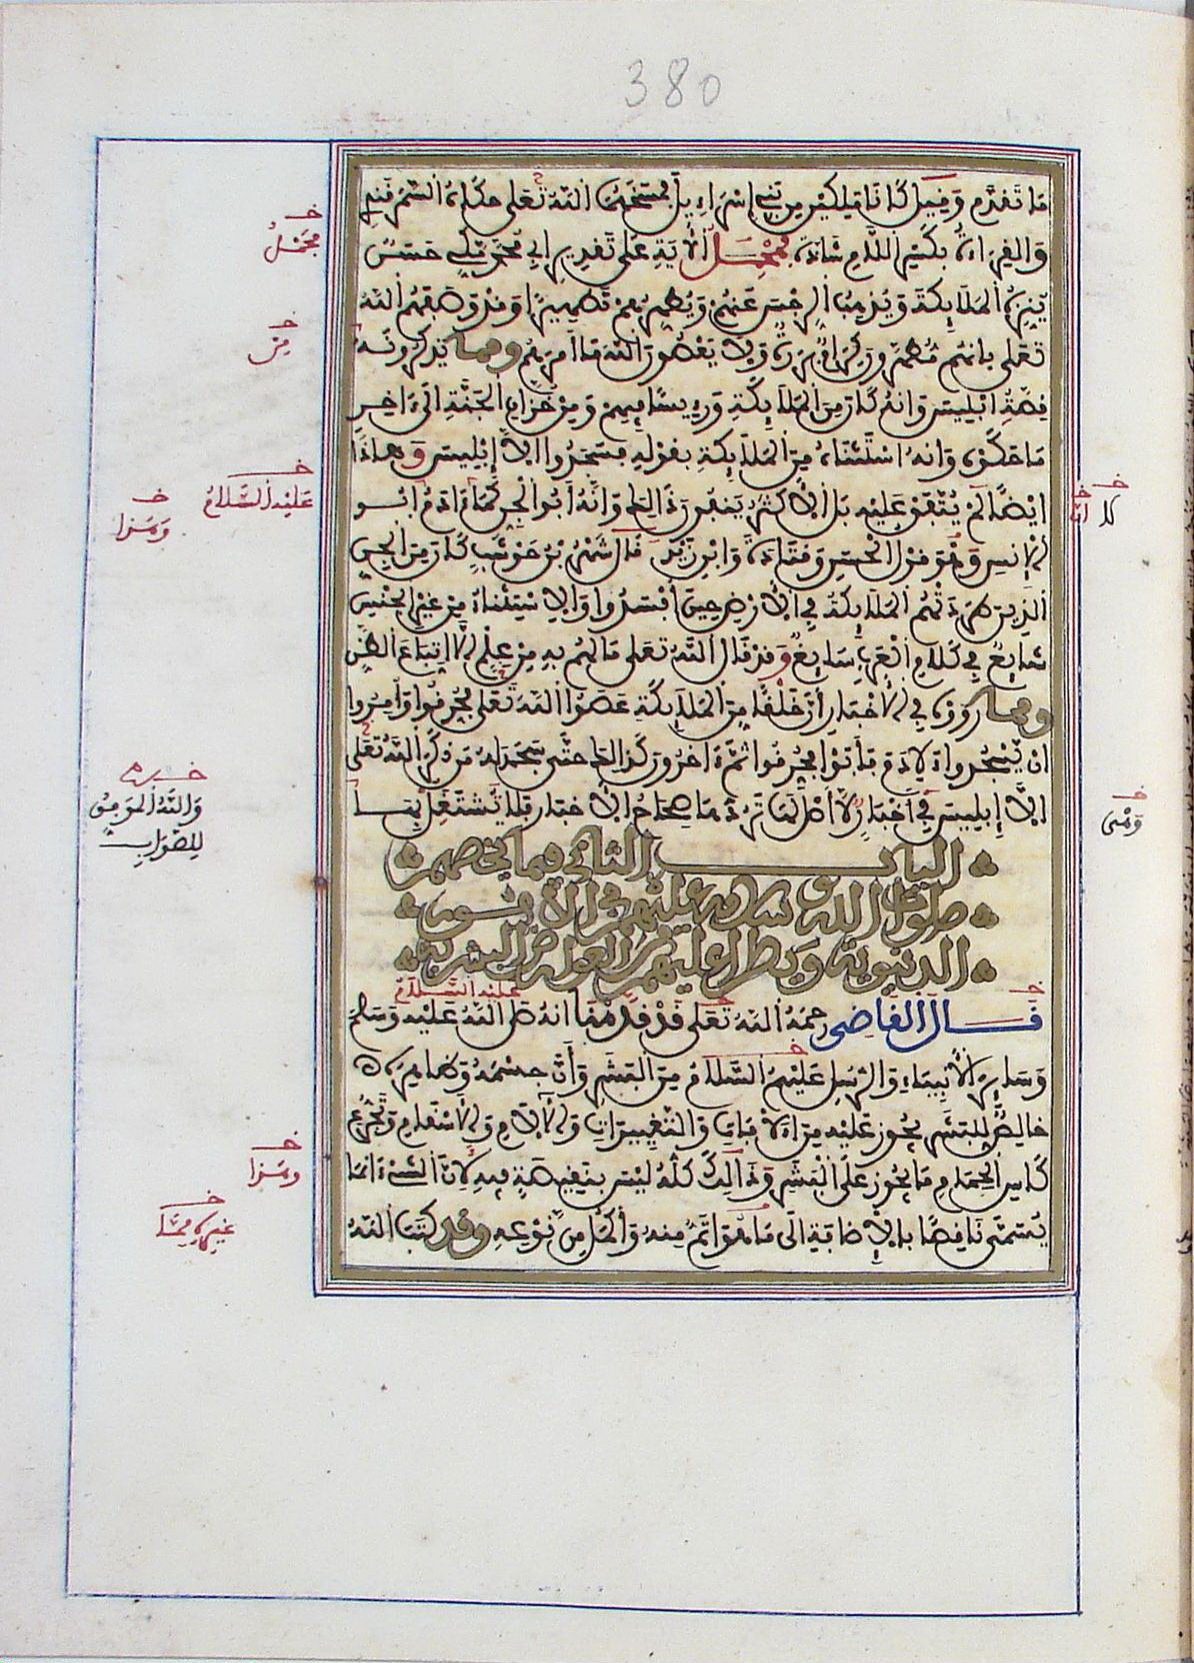 380
ما تقدم وقيل كانا ملكين من بني إسراءيل فمسخهما الله تعلى حكاه السمرقندي
والقراءة بكسر اللام شاذة فمحمل الأية على تقدير ابي محمد مكي حسن
ينزه الملايكة ويذهب الرجس عنهم ويطهرهم تطهيرا وقد وصفهم الله
تعلى بانهم مطهرون وكرام بررة ولا يعصون الله ما امرهم ومما يذكرونه
قصة ابليس وانه كان من الملايكة ورييسا فيهم ومن خزان الجنة الى ءاخر
ما حكوه وانه استثناه من الملايكة بقوله فسجدوا إلا إبليس وهاذا
ايضا لم يتفق عليه بل الأكثر ينفون ذالك وانه أبو الجن كما ءادم ابو
الإنس وهو قول الحسن وقتادة وابن زيد قال شهر بن حوشب كان من الجن
الذين طردتهم الملايكة في الأرض حين أفسدوا والاستثناء من غير الجنس
شايع في كلام العرب سايغ وقد قال الله تعلى ما لهم به من علم إلا اتباع الظن
ومما رووه في الأخبار أن خلقا من الملايكة عصوا الله تعلى فحرقوا وأمروا
ان يسجدوا لادم فأبوا فحرقوا ثم ءاخرون كذالك حتى سجد له من ذكر الله تعلى
الا إبليس في أخبار لا أصل لها تردها صحاح الأخبار فلا نشتغل بها
الباب الثاني فيما يخصهم
صلوات الله وسلامه عليهم في الأمور
الدنيوية ويطرا عليهم من العوارض البشرية
قال القاضي رحمه الله تعلى قد قدمنا انه صلى الله عليه وسلم
وساير الأنبياء والرسل عليهم السلام من البشر وأن جسمه وظاهره
خالص للبشر يجوز عليه من الافات والتغييرات والآلام والأسقام وتجرع
كاس الحمام ما يجوز على البشر وذالك كله ليس بنقيصة فيه لان الشيء انما
يسمى ناقصا بالإضافة الى ما هو اتم منه وأكمل من نوعه وقد كتب الله
محمل
من
عليه السلام
وهذا
كلا
انه
والله الموفق
للصواب
عليه السلام
وهذا
غيره مما